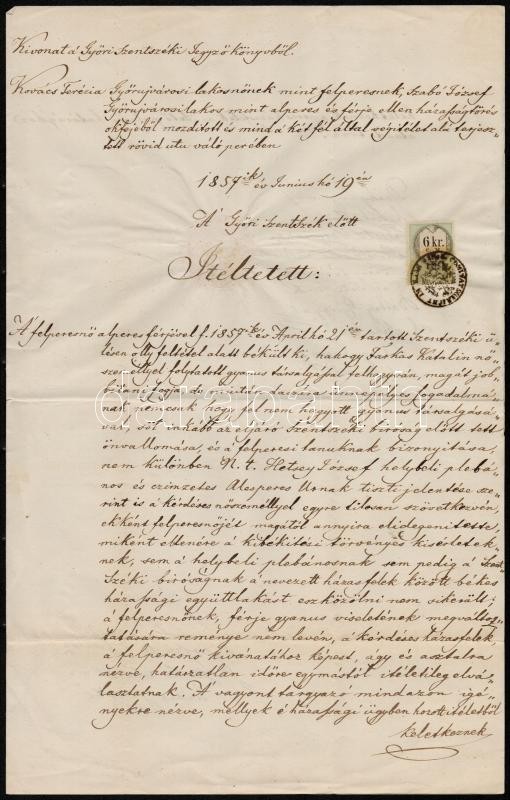 Kivonat á Győri Szentszéki Jegyzőkönyvből.
Kovács Terézia Győrujvárosi lakosnőnek mint felperesnek, Szabó József
Győrujvárosi lakos mint alperes és férje, ellen házasságtörés
okfejéből mozditott és mind a két fél által végitélet alá terjesz„
tett rövid utu váló perében
1857ik év Junius hó 19én
A' Győri Szentszék előtt
Itéltetett:
6 kr.
A' felperesnő alperes férjével f. 1857ik év April hó 21én tartott Szentszéki ü„
lésen olly feltétel alatt békült ki, hahogy Farkas Katalin nő„
személlyel folytatott gyanus társalgással felhagyván, magát job„
bitani fogja, de miután daczára ünnepélyes fogadalmá„
nak, nemcsak hogy fel nem hagyott gyanus társalgásá„
val, sőt inkább az eljáró Szentszéki biróság előtt tett
önvallomása, és á felperesi tanuknak bizonyitása,
nem különben N. t. Hetsey József helybeli plebá„
nos és czimzetes Alesperes Urnak tiszti jelentése sze„
rint is á kérdéses nőszeméllyel egyre tilosan szövetkezvén,
ekként felperesnőjét magától annyira elidegenitette,
miként ellenére á kibékitési törvényes kisérletek„
nek, sem á helybeli plebánosnak sem pedig á Szent
Széki biróságnak á nevezett házasfelek között békés
házassági együttlakást eszközölni nem sikerült;
á felperesnőnek, férje gyanus viseletének megváltoz„
tatására reménye nem lévén, á kérdéses házasfelek,
á felperesnő kivánatához képest, ágy és asztalra
nézve, határzatlan időre egymástól itéletileg elvá„
lasztatnak. A' vagyont tárgyazó mindazon igé„
nyekre nézve, mellyek é házassági ügyben hozott itéletből
keletkeznek
darabanth